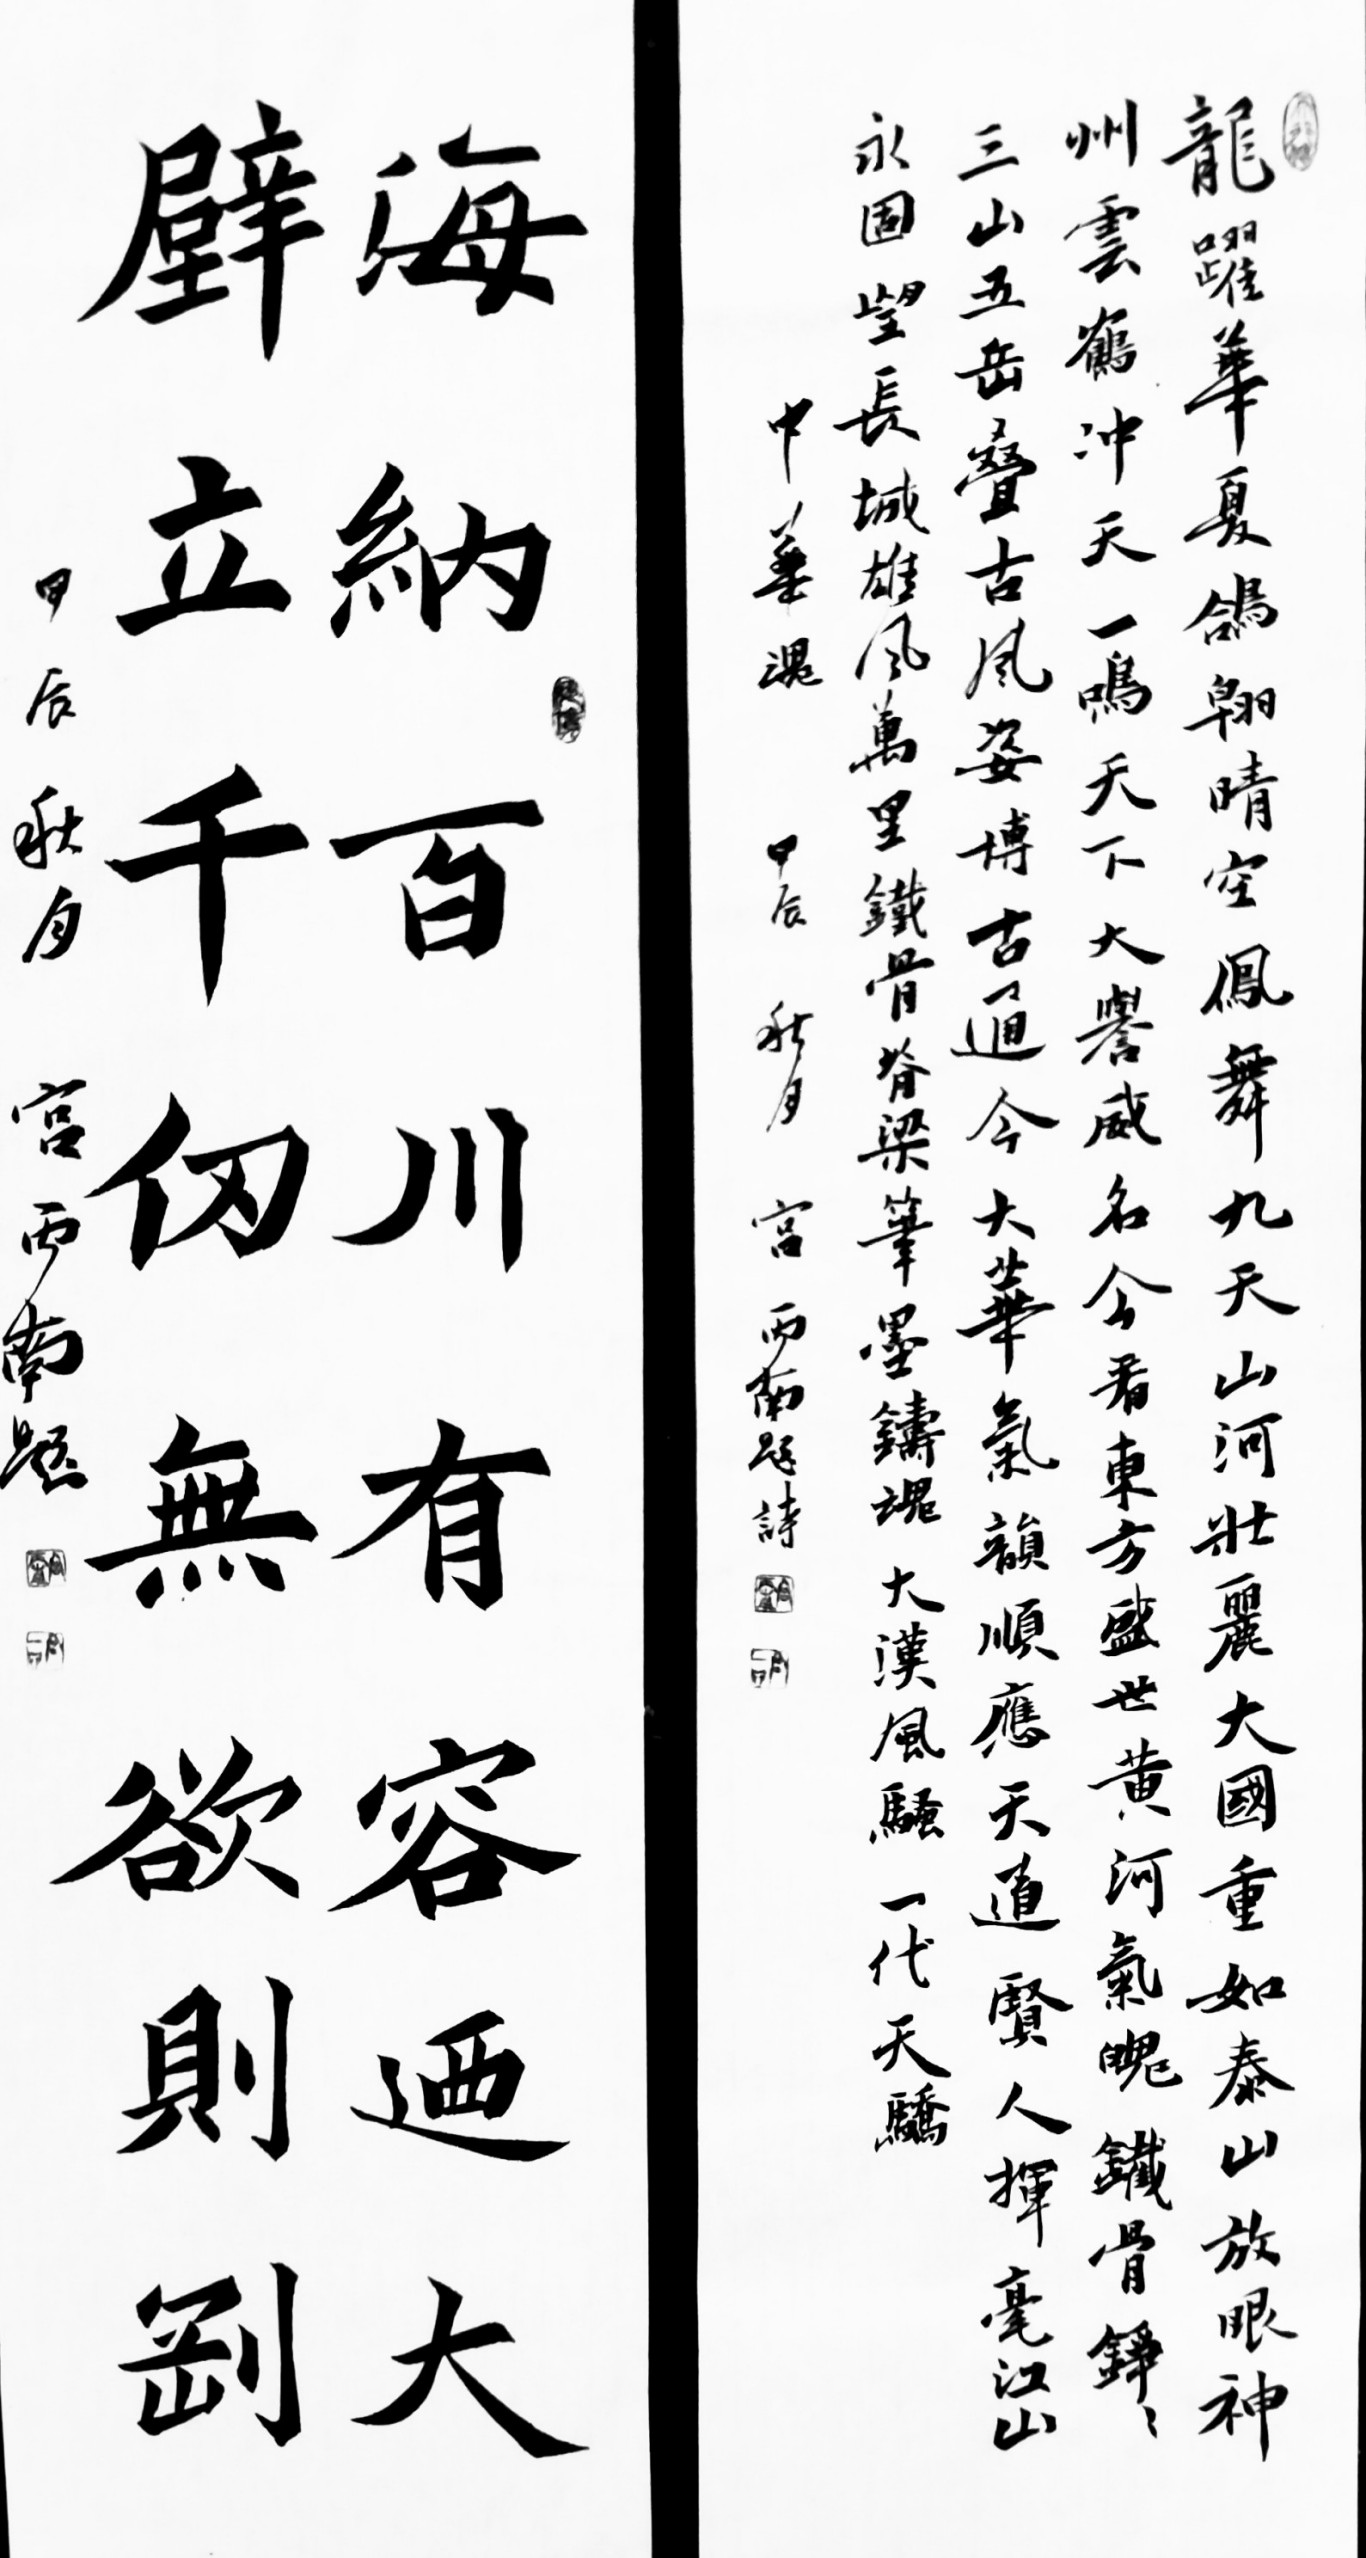 龍躍華夏鴿翱晴空鳳舞九天山河壯麗大國重如泰山放眼神
州雲鶴冲天一鳴天下大譽威名今看東方盛世黄河氣魄鐵骨錚〻
三山五岳叠古風姿博古通今大華氣韻順應天道賢人揮毫江山
永固望長城雄風萬里鐵骨脊梁筆墨鑄魂大漢風騷一代天驕
中華魂 甲辰秋月 宫西南题詩
海納百川有容迺大
壁立千仞無欲則剛
甲辰秋月 宫西南题